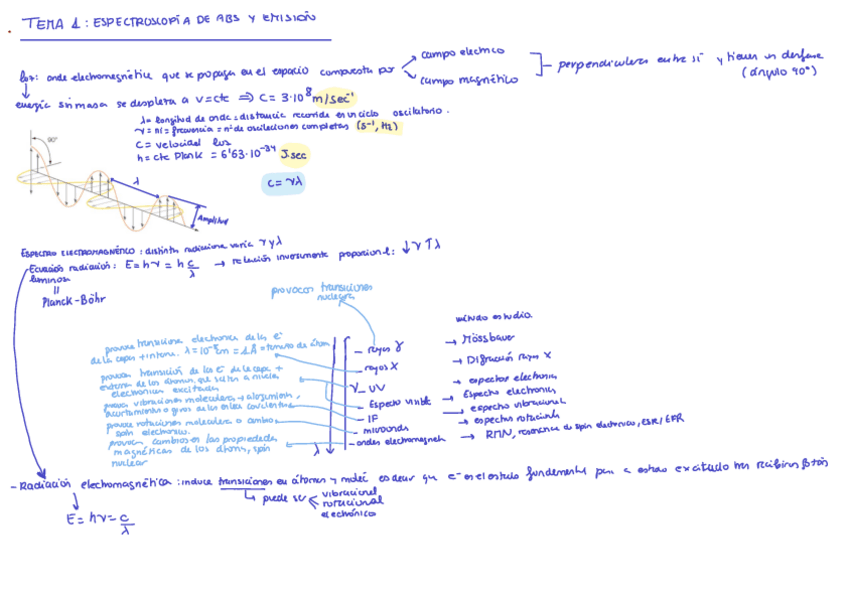 TEMA 1: ESPECTROSCOPÍA DE ABS Y EMISIÓN
luz: onda electromagnética que se propaga en el espacio compuesta por
campo electrico
campo magnético
perpendiculares entre sí y tienen un desfase
(ángulo 90°)
energía sin masa se desplaza a v=cte ⇒ c = 3·10⁸ m/sec⁻¹
λ = longitud de onda = distancia recorrida en un ciclo oscilatorio.
ν = ni = frecuencia = nº de oscilaciones completas (s⁻¹, Hz)
C = velocidad luz
h = cte Plank = 6'63·10⁻³⁴ J.sec
c = νλ
90°
λ
Amplitud
ESPECTRO ELECTROMAGNÉTICO: distintas radiaciones varía ν y λ
Ecuación radiación: E = hν = h c/λ → relación inversamente proporcional: ↓ν ↑λ
luminosa
=
Planck-Böhr
provocan transiciones
nucleares
método estudio.
- rayos γ → Mössbauer
- rayos X → Difracción Rayos X
- UV → espectros electrónicos
- Espectro visible → Espectro electrónico
- IF → espectro vibracional
- microondas → espectros rotacionales
- ondas electromagneti → RMN, resonancia de spin electrónico, ESR/EPR
ν
λ
provoca transiciones electronicas de los e⁻
de la capa + interna. λ = 10⁻⁸ cm = 1Å = tamaño de átomo
provocan transición de los e⁻ de la capa +
externa de los átomos que saltan a niveles
electronicos excitados
provoca vibraciones moleculares → alargamiento,
acortamiento o giros de los enlaces covalentes
provoca rotaciones moleculares o cambio
spin electronico.
provocan cambios en las propiedades
magnéticas de los átomos, spin
nuclear
- Radiación electromagnética: induce transiciones en átomos y moléc es decir que e⁻ en el estado fundamental pasa a estado excitado tras recibir un fotón
puede ser
vibracional
rotacional
electrónico
E = hν = c/λ